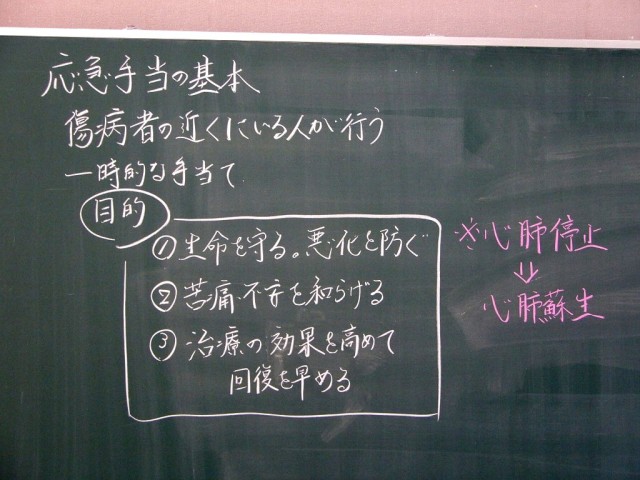 応急手当の基本
傷病者の近くにいる人が行う
一時的な手当て
目的
① 生命を守る。悪化を防ぐ
② 苦痛、不安を和らげる
③ 治療の効果を高めて
回復を早める
※心肺停止
⇓
心肺蘇生